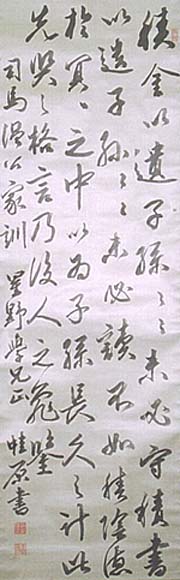 積金以遺子孫〻〻未必守積書
以遺子孫〻〻未必讀不如積陰德
於冥〻之中以為子孫長久之計此
先賢之格言乃後人之龜鑑
司馬温公家訓 星野學兄正 原書